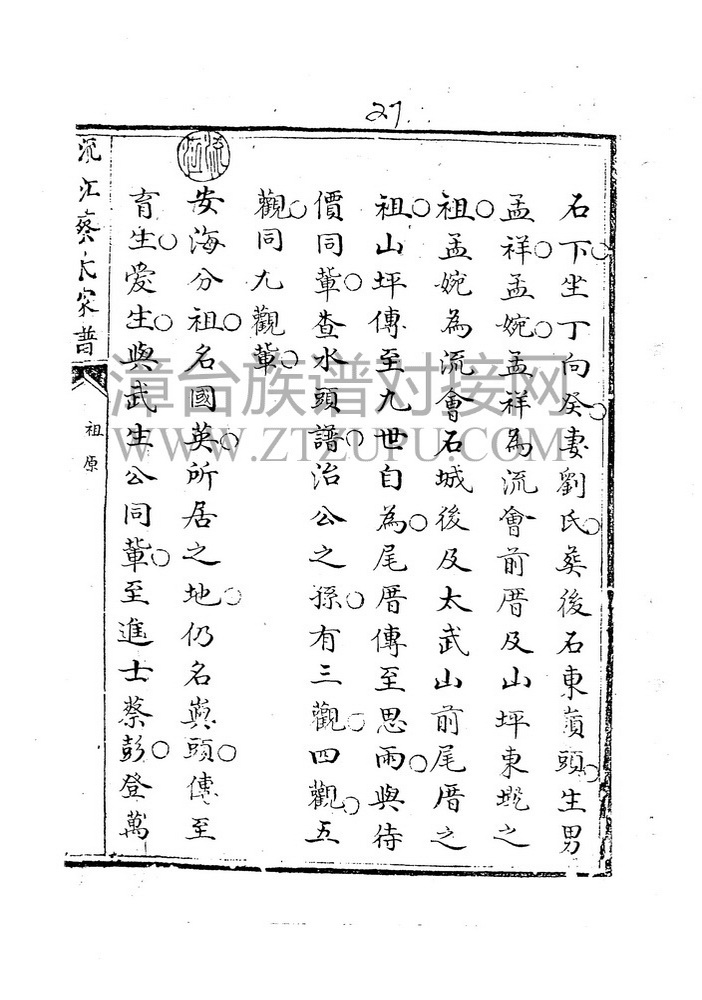 27
石下坐丁向癸○妻劉氏○葬後石東嶺頭○生男
孟祥○孟婉○孟祥為流會前厝及山坪東埕之
祖○孟婉為流會石城後及太武山前尾厝之
祖○山坪傳至九世自為○尾厝傳至思雨○與待
價同輩○查水頭譜○治公之孫○有三觀○四觀○五
觀○同九觀輩○
安海分祖○名國英○所居之地○仍名粦頭○傳至
育生○愛生○與武生公同輩○至進士蔡彭○登萬
流江
流江蔡氏家普
祖原
漳台族谱对接网
WWW.ZTZUPU.COM